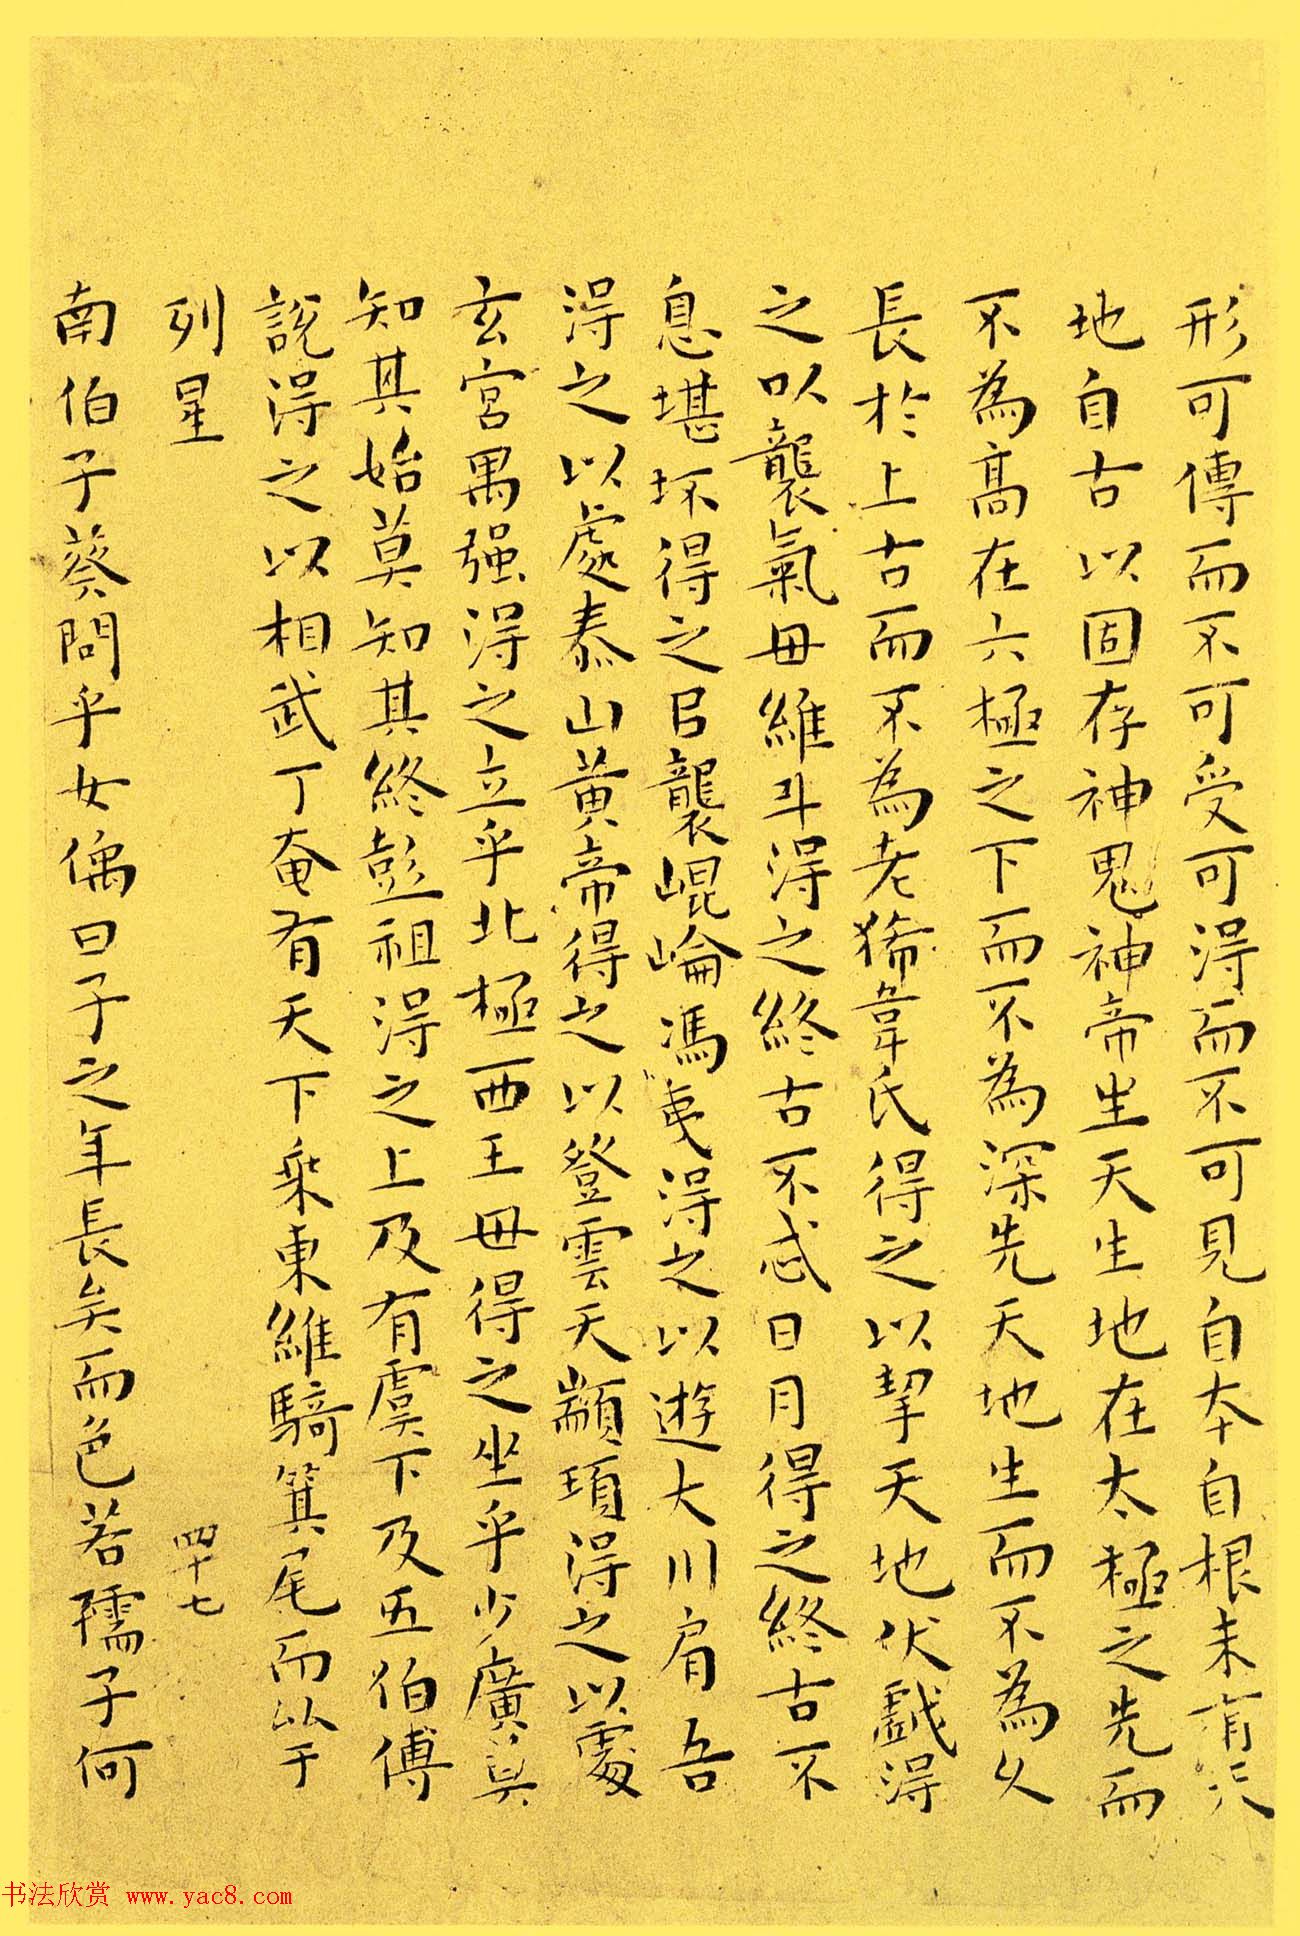 形可傳而不可受可得而不可見自本自根未有天
地自古以固存神鬼神帝生天生地在太極之先而
不為高在六極之下而不為深先天地生而不為久
長於上古而不為老狶韋氏得之以挈天地伏戲得
之以襲氣母維斗得之終古不忒日月得之終古不
息堪坏得之㠯襲崐崘馮夷得之以遊大川肩吾
得之以處泰山黃帝得之以登雲天顓頊得之以處
玄宮禺强得之立乎北極西王母得之坐乎少廣莫
知其始莫知其終彭祖得之上及有虞下及五伯傅
說得之以相武丁奄有天下乘東維騎箕尾而以于
列星
四十七
南伯子葵問乎女偊曰子之年長矣而色若孺子何
书法欣赏 www.yac8.com